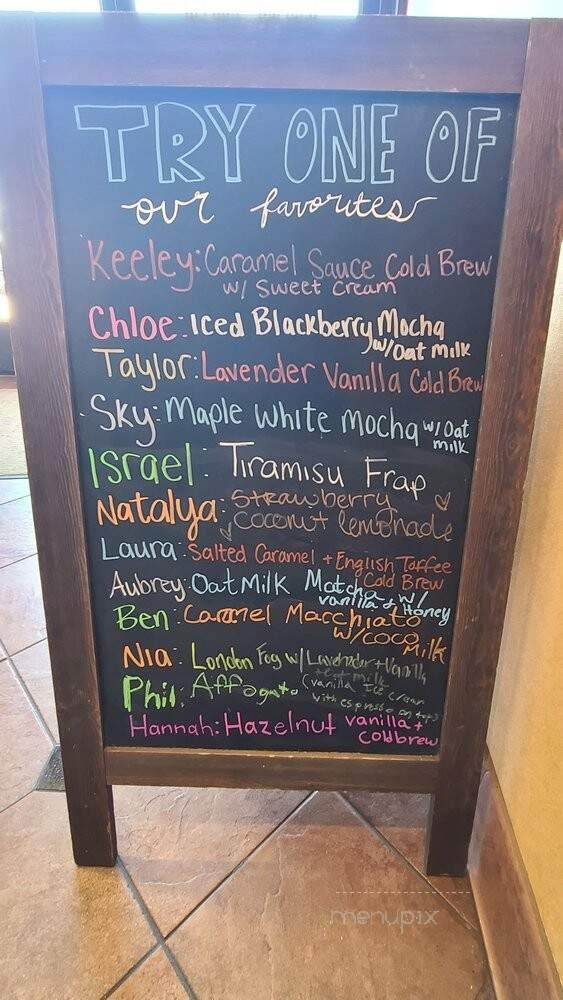 TRY ONE OF
our favorites
Keeley: Caramel Sauce Cold Brew
w/ Sweet Cream
Chloe: Iced Blackberry Mocha
w/Oat Milk
Taylor: Lavender Vanilla Cold Brew
Sky: Maple White Mocha w/Oat
milk
Israel: Tiramisu Frap
Natalya: Strawberry
Coconut lemonade
Laura: Salted Caramel + English Toffee
Cold Brew
Aubrey: Oat Milk Matcha w/
vanilla & Honey
Ben: Caramel Macchiato
w/coco Milk
Nia: London Fog w/ Lavender + Vanilla
+ oat milk
Phil: Affogato (vanilla Ice cream
with espresso on top)
Hannah: Hazelnut vanilla +
coldbrew
menupix